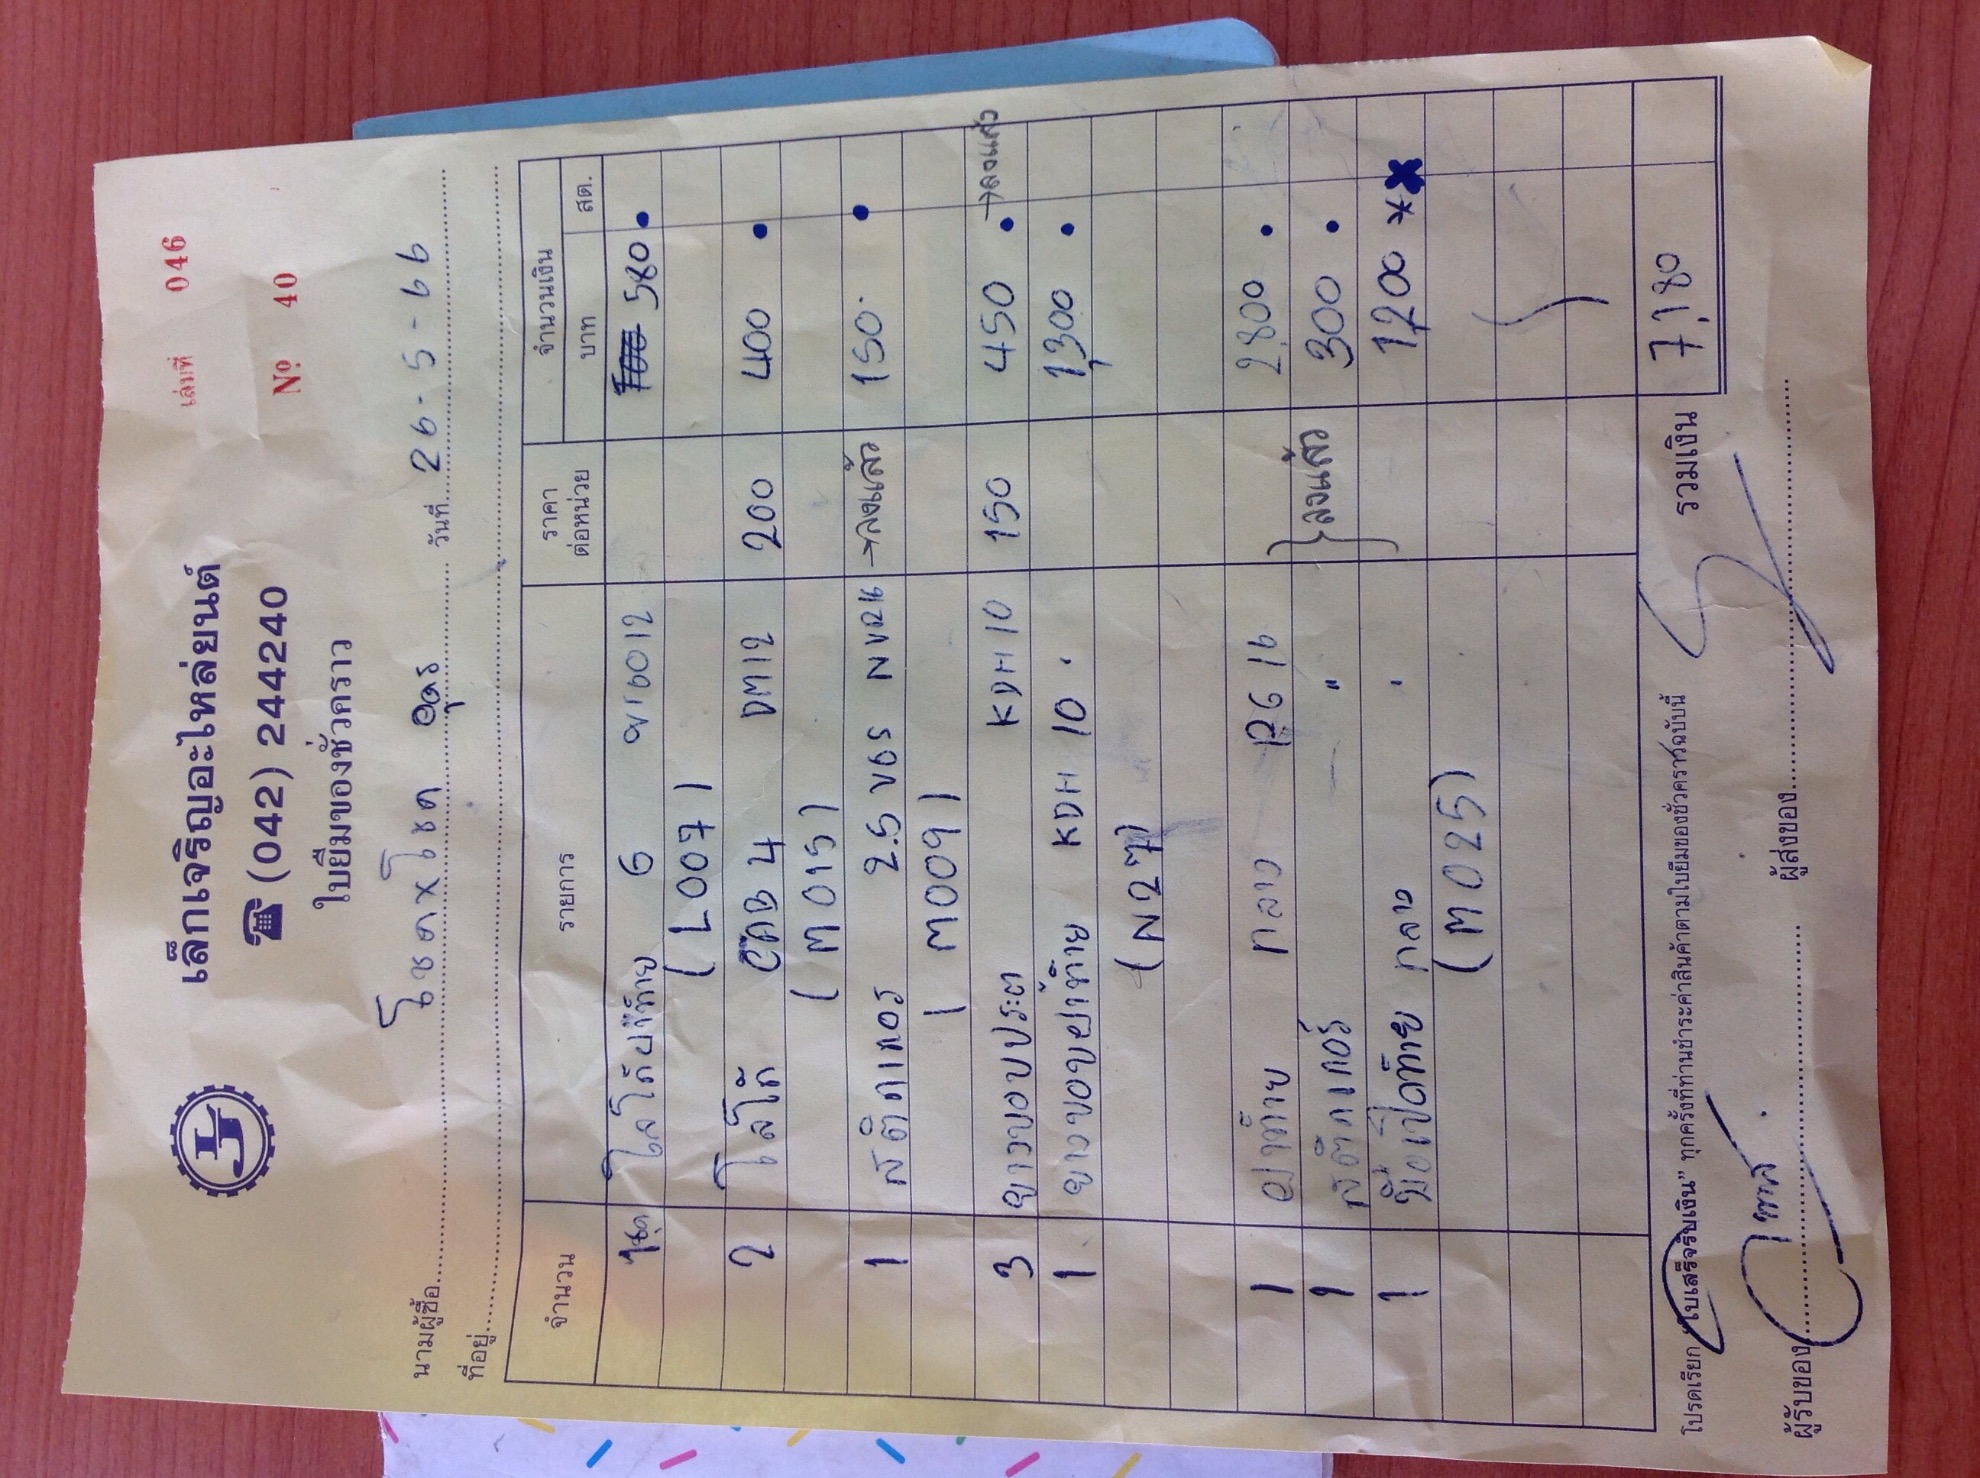 เล่มที่ 046
เล็กเจริญอะไหล่ยนต์
☎ (042) 244240
Nº 40
ใบยืมของชั่วคราว
นามผู้ซื้อ โชค x โชค อุดร วันที่ 26-5-66
ที่อยู่
จำนวน รายการ ราคาต่อหน่วย จำนวนเงิน
บาท สต.
1 ชุด โลโก้ฝาท้าย 6 580
(L007)
2 โลโก้ CAB 4 DM12 200 400
(M015)
1 สติกเกอร์ 2.5 →ลงแล้ว 150
(M009)
3 ยางขอบประตู KDH 10 150 450 →ลงแล้ว
1 ยางขอบฝาท้าย KDH 10 1,300
(N27)
1 ฝาท้าย กลาง 2,800
1 สติกเกอร์ " } ลงแล้ว 300
1 มือเปิดท้าย กลาง 1,200 **
(M025)
รวมเงิน 7,180
โปรดเรียก "ใบเสร็จรับเงิน" ทุกครั้งที่ท่านชำระค่าสินค้าตามใบยืมของชั่วคราวฉบับนี้
ผู้รับของ ผู้ส่งของ